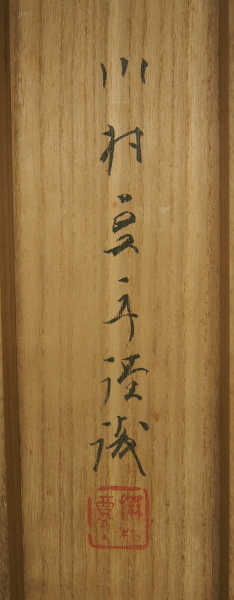 川村曼舟謹識